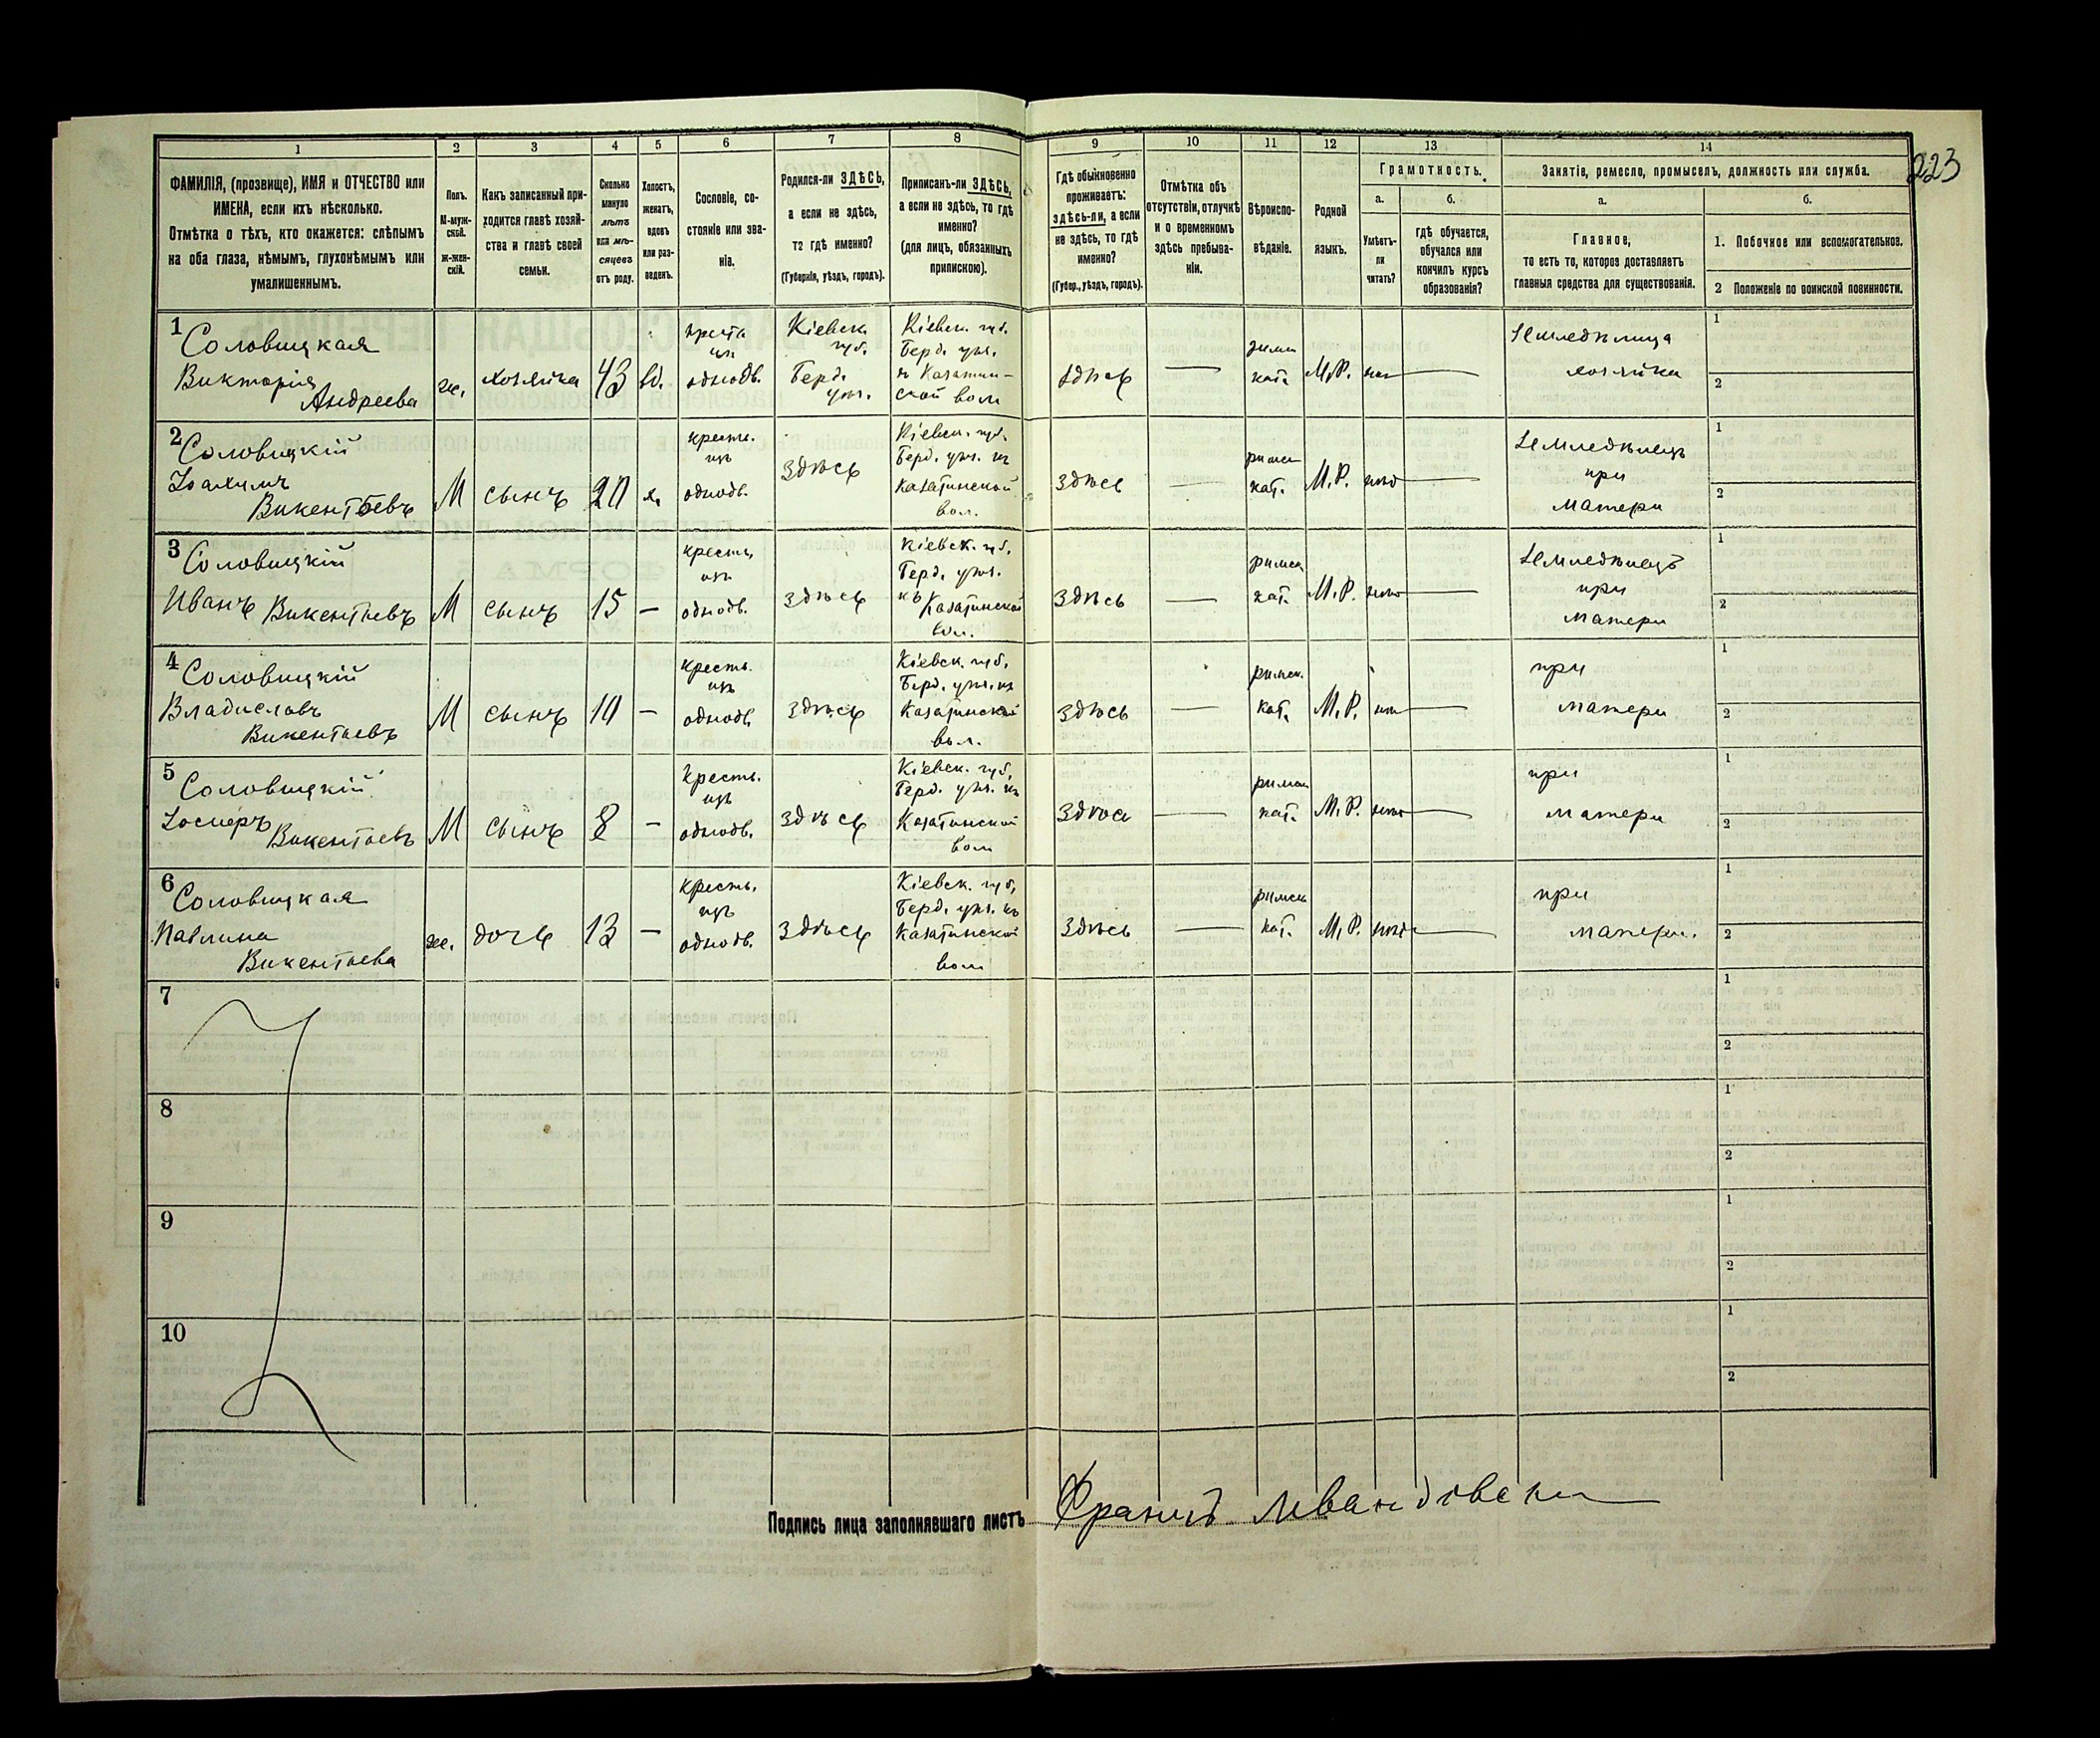 223
1 2 3 4 5 6 7 8 9 10 11 12 13 14
ФАМИЛІЯ, (прозвище), ИМЯ и ОТЧЕСТВО или
ИМЕНА, если ихъ нѣсколько.
Отмѣтка о тѣхъ, кто окажется: слѣпымъ
на оба глаза, нѣмымъ, глухонѣмымъ или
умалишеннымъ.
Полъ.
М-муж-
ской.
Ж-жен-
скій.
Какъ записанный при-
ходится главѣ хозяй-
ства и главѣ своей
семьи.
Сколько
минуло
лѣтъ
или мѣ-
сяцевъ
отъ роду.
Холостъ,
женатъ,
вдовъ
или раз-
веденъ.
Сословіе, со-
стояніе или зва-
ніе.
Родился-ли ЗДѢСЬ,
а если не здѣсь,
то гдѣ именно?
(Губернія, уѣздъ, городъ).
Приписанъ-ли ЗДѢСЬ,
а если не здѣсь, то гдѣ
именно?
(для лицъ, обязанныхъ
припискою).
Гдѣ обыкновенно
проживаетъ:
здѣсь-ли, а если
не здѣсь, то гдѣ
именно?
(Губер., уѣздъ, городъ).
Отмѣтка объ
отсутствіи, отлучкѣ
и о временномъ
здѣсь пребыва-
ніи.
Вѣроиспо-
вѣданіе.
Родной
языкъ.
Грамотность.
а.
Умѣетъ-
ли
читать?
б.
гдѣ обучается,
обучался или
кончилъ курсъ
образованія?
Занятіе, ремесло, промыселъ, должность или служба.
а.
Главное,
то есть то, которое доставляетъ
главныя средства для существованія.
б.
1. Побочное или вспомогательное.
2 Положеніе по воинской повинности.
1
Соловицкая
Викторія
Андреева
ж.
хозяйка
43
вд.
однодв.
Кіевск.
губ.
Берд.
уѣз.
Кіевск. губ.
Берд. уѣз.
къ Казатин-
ской вол.
здѣсь
—
кат.
М.Р.
—
Землед​ѣлица
хозяйка
1
2
2
Соловицкій
Іоахимъ
Викентьевъ
М
сынъ
20
х.
кресть.
изъ
однодв.
здѣсь
Кіевск. губ.
Берд. уѣз. къ
Казатинской
вол.
здѣсь
—
римск.
кат.
М.Р.
—
Земледѣлецъ
при
матери
1
2
3
Соловицкій
Иванъ Викентьевъ
М
сынъ
15
—
кресть.
изъ
однодв.
здѣсь
Кіевск. губ.
Берд. уѣз.
къ Казатинской
вол.
здѣсь
—
римск.
кат.
М.Р.
—
Земледѣлецъ
при
матери
1
2
4
Соловицкій
Владиславъ
Викентьевъ
М
сынъ
10
—
кресть.
изъ
однодв.
здѣсь
Кіевск. губ.
Берд. уѣз. къ
Казатинской
вол.
здѣсь
—
римск.
кат.
М.Р.
—
при
матери
1
2
5
Соловицкій
Викентьевъ
М
сынъ
8
—
кресть.
изъ
однодв.
здѣсь
Кіевск. губ.
Берд. уѣз. къ
Казатинской
вол.
здѣсь
—
римск.
кат.
М.Р.
—
при
матери
1
2
6
Соловицкая
Павлина
Викентьева
ж.
дочь
13
—
кресть.
изъ
однодв.
здѣсь
Кіевск. губ.
Берд. уѣз. къ
Казатинской
вол.
здѣсь
—
римск.
кат.
М.Р.
—
при
матери.
1
2
7
1
2
8
1
2
9
1
2
10
1
2
Подпись лица заполнявшаго листъ